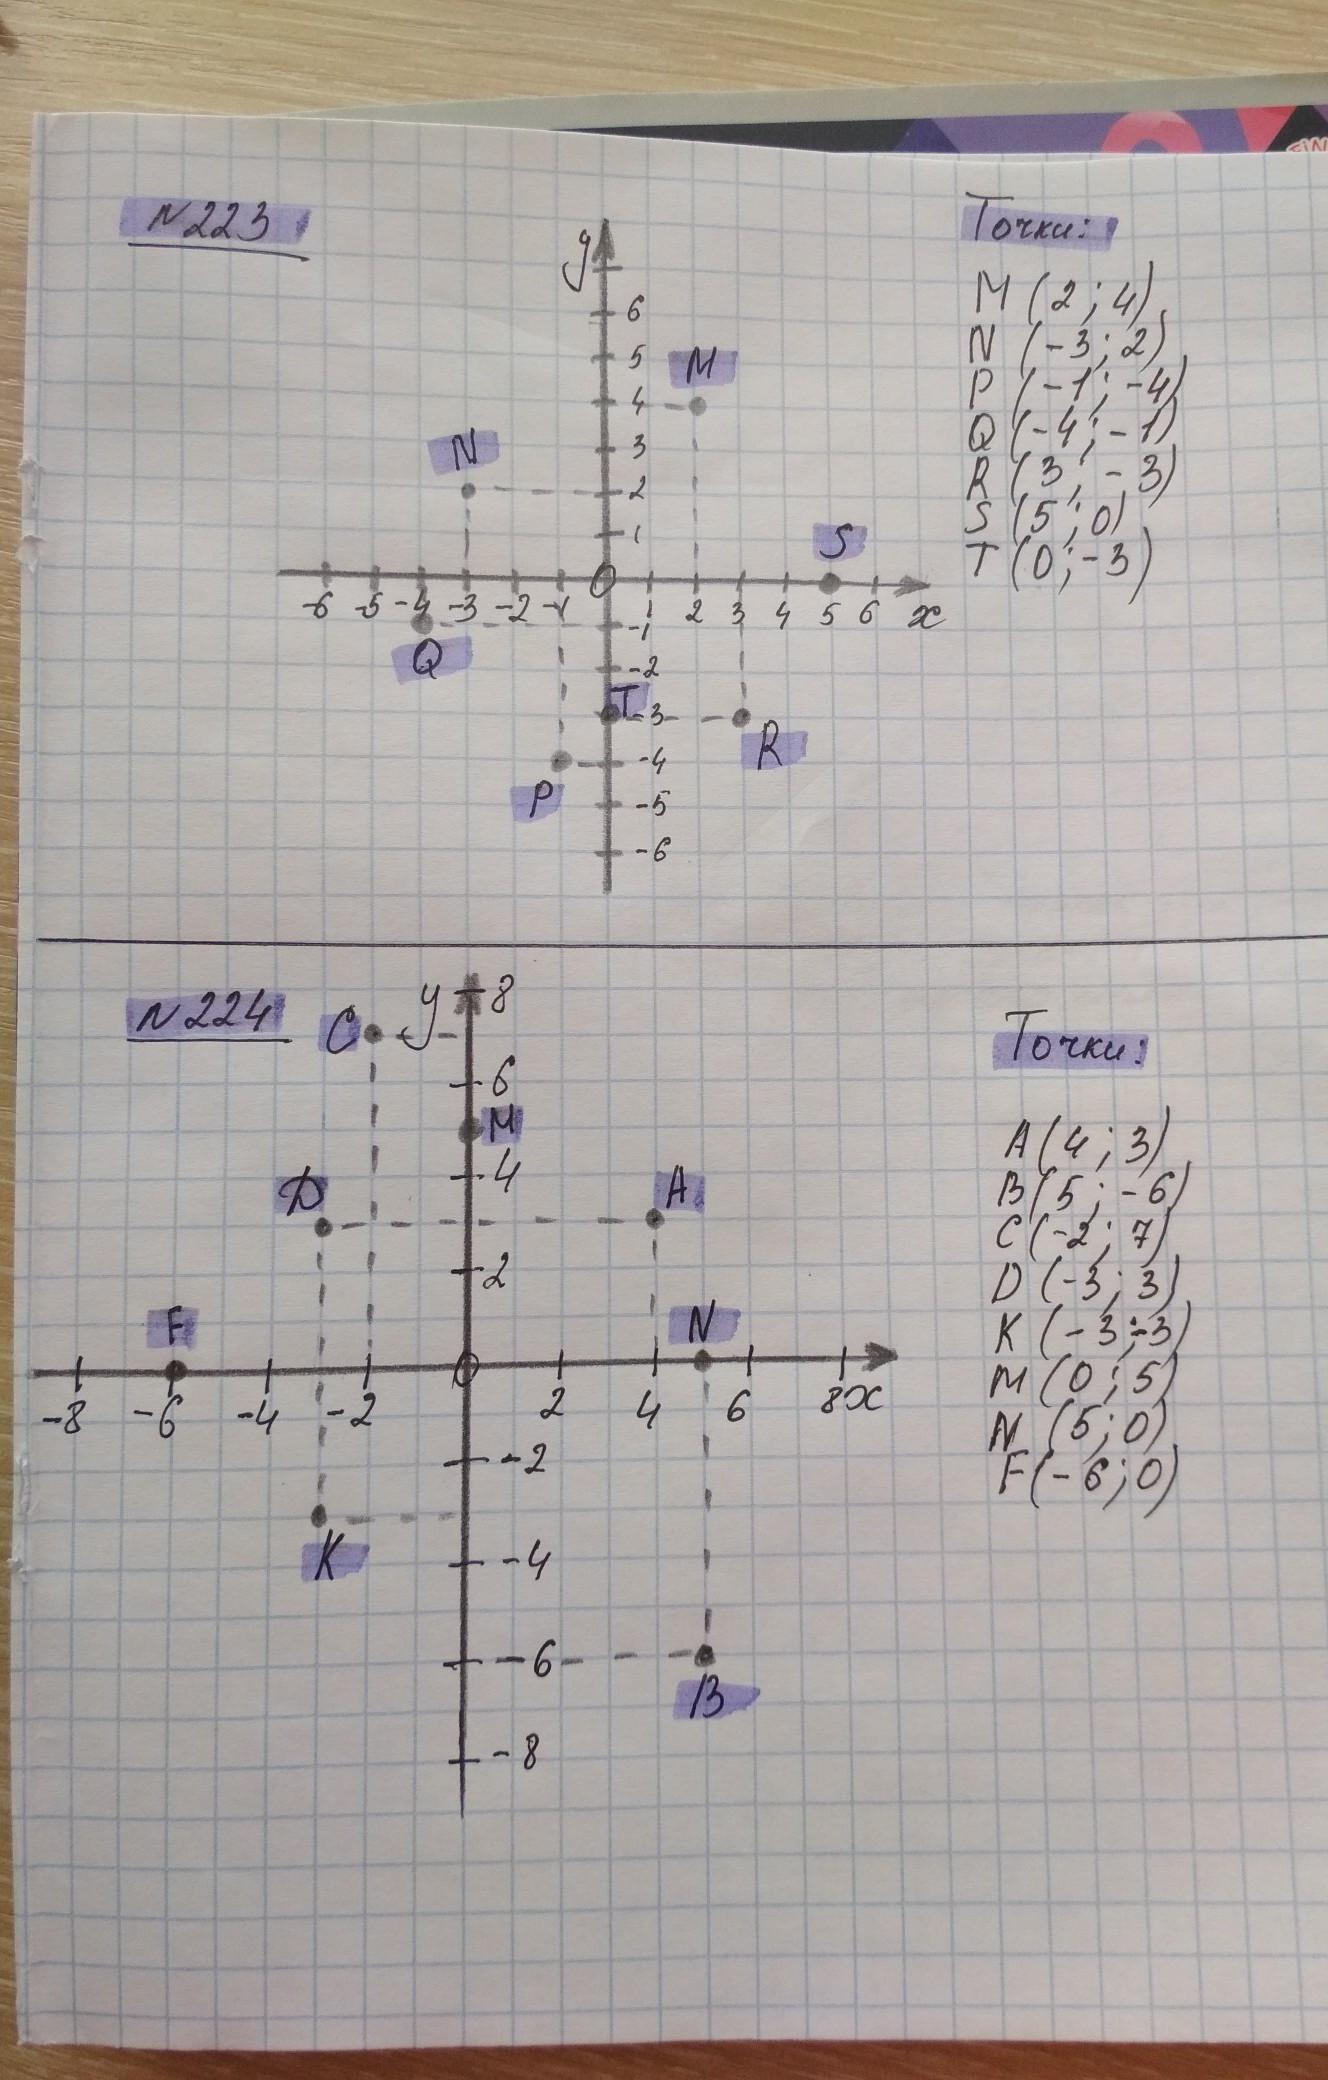 N223
Точки:
M (2 ; 4)
N (-3 ; 2)
P (-1 ; -4)
Q (-4 ; -1)
R (3 ; -3)
S (5 ; 0)
T (0 ; -3)
y
6
5
M
4
N
3
2
1
S
O
-6 -5 -4 -3 -2 -1 1 2 3 4 5 6 x
-1
Q
-2
T
-3
R
-4
P
-5
-6
N224
C
y
8
6
M
4
D
A
2
F
N
O
-8 -6 -4 -2 2 4 6 8 x
-2
K
-4
-6
B
-8
Точки:
A (4 ; 3)
B (5 ; -6)
C (-2 ; 7)
D (-3 ; 3)
K (-3 ; -3)
M (0 ; 5)
N (5 ; 0)
F (-6 ; 0)